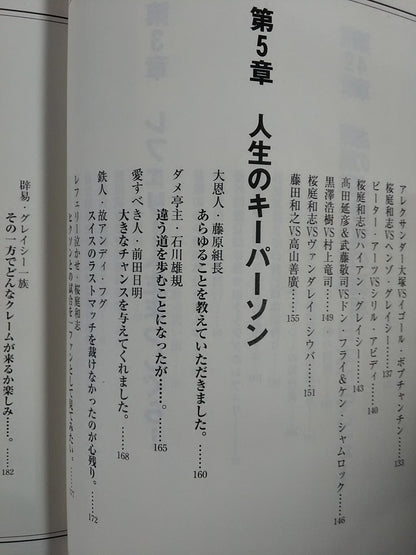 アレクサンダー大塚VSイゴール・ボブチャンチン……133
桜庭和志VSヘンゾ・グレイシー……137
ピーター・アーツVSシリル・アビディ……140
桜庭和志VSハイアン・グレイシー……143
高田延彦&武藤敬司VSドン・フライ&ケン・シャムロック……146
黒澤浩樹VS村上竜司……149
桜庭和志VSヴァンダレイ・シウバ……151
藤田和之VS高山善廣……155
第5章 人生のキーパーソン
大恩人・藤原組長
あらゆることを教えていただきました。……160
ダメ亭主・石川雄規
違う道を歩むことになったが……。……165
愛すべき人・前田日明
大きなチャンスを与えてくれました。……168
鉄人・故アンディ・フグ
スイスのラストマッチを裁けなかったのが心残り。……172
レフェリー泣かせ・桜庭和志
辟易・グレイシー一族
その一方でどんなクレームが来るか楽しみ……。……182